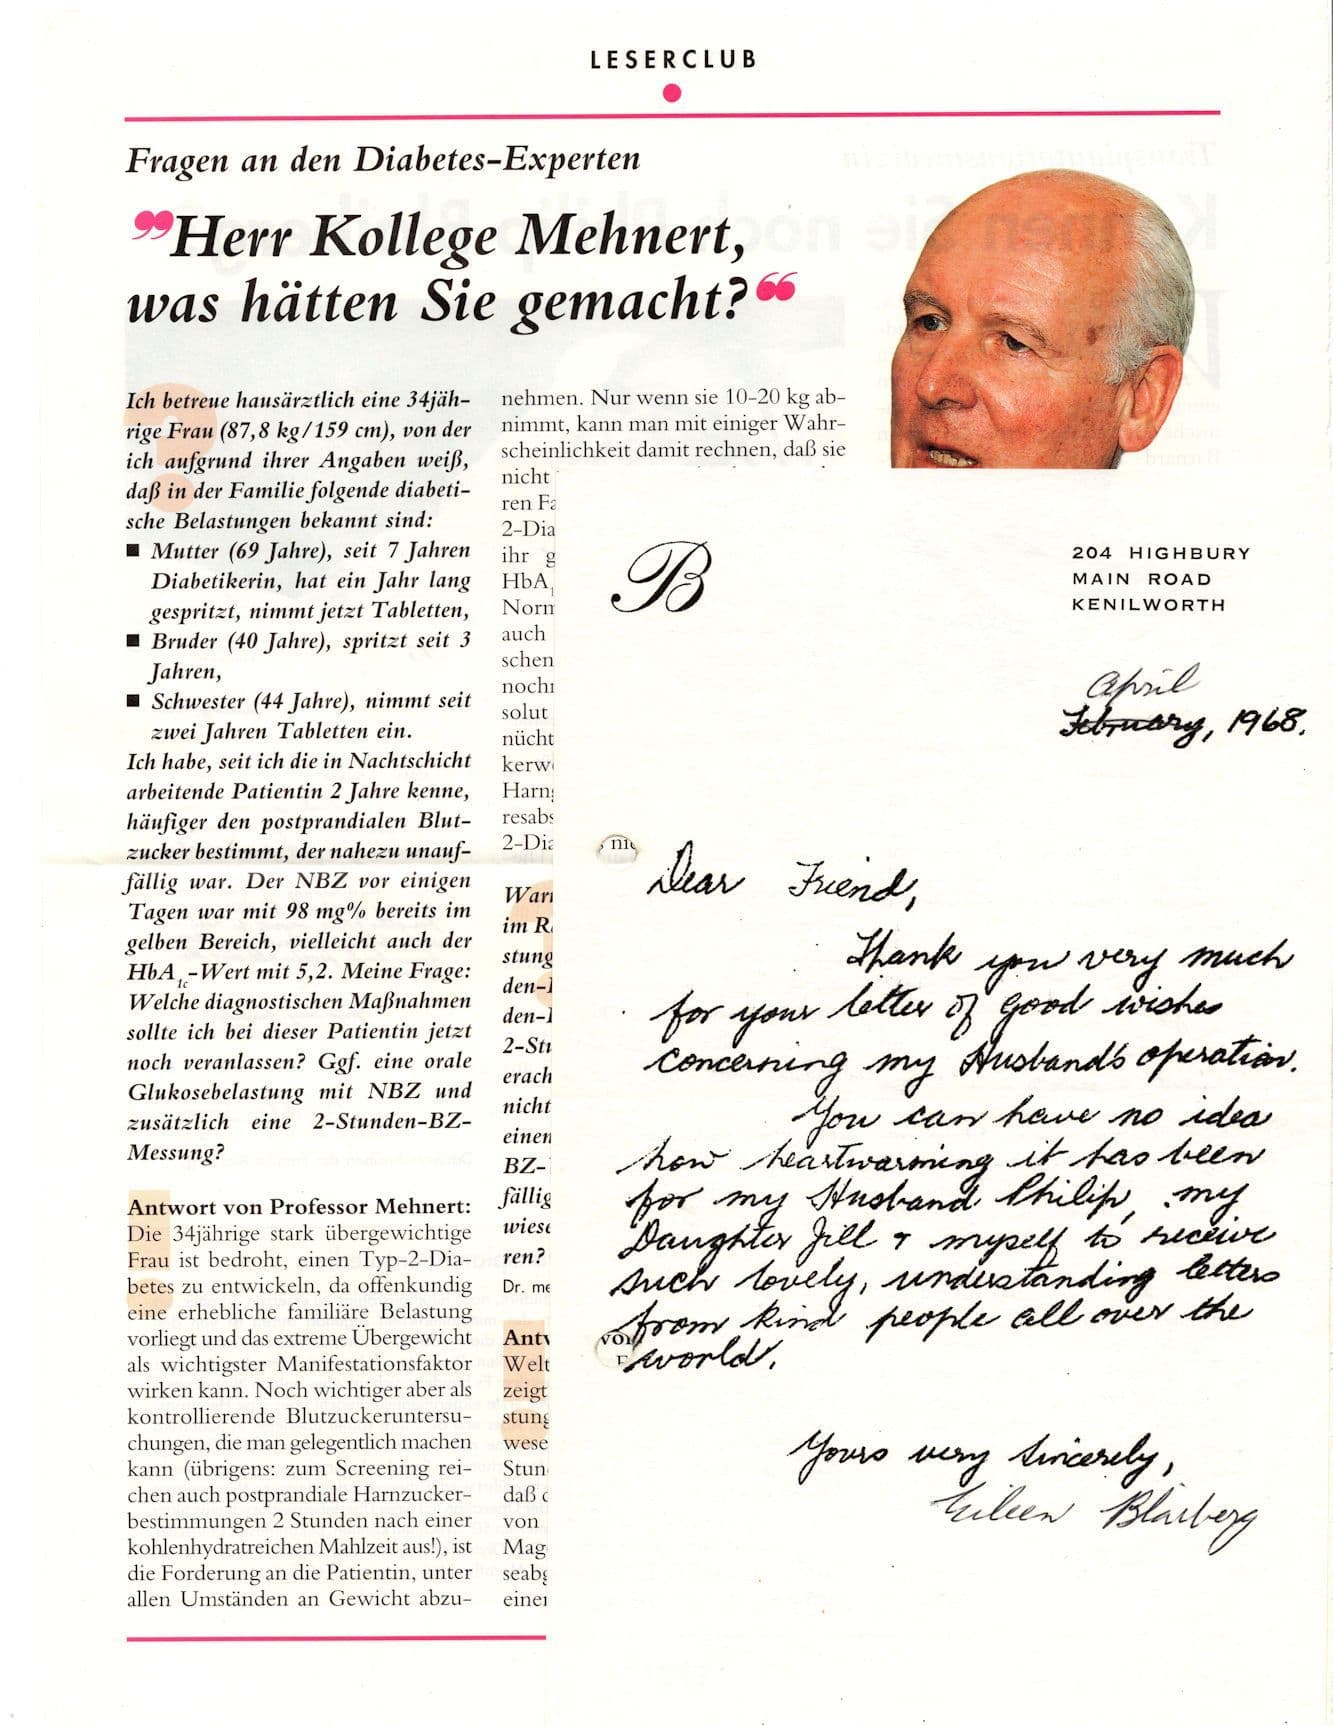 LESERCLUB
Fragen an den Diabetes-Experten
"Herr Kollege Mehnert,
was hätten Sie gemacht?"
Ich betreue hausärztlich eine 34jäh-
rige Frau (87,8 kg/159 cm), von der
ich aufgrund ihrer Angaben weiß,
daß in der Familie folgende diabeti-
sche Belastungen bekannt sind:
■ Mutter (69 Jahre), seit 7 Jahren
Diabetikerin, hat ein Jahr lang
gespritzt, nimmt jetzt Tabletten,
■ Bruder (40 Jahre), spritzt seit 3
Jahren,
■ Schwester (44 Jahre), nimmt seit
zwei Jahren Tabletten ein.
Ich habe, seit ich die in Nachtschicht
arbeitende Patientin 2 Jahre kenne,
häufiger den postprandialen Blut-
zucker bestimmt, der nahezu unauf-
fällig war. Der NBZ vor einigen
Tagen war mit 98 mg% bereits im
gelben Bereich, vielleicht auch der
HbA1c-Wert mit 5,2. Meine Frage:
Welche diagnostischen Maßnahmen
sollte ich bei dieser Patientin jetzt
noch veranlassen? Ggf. eine orale
Glukosebelastung mit NBZ und
zusätzlich eine 2-Stunden-BZ-
Messung?
Antwort von Professor Mehnert:
Die 34jährige stark übergewichtige
Frau ist bedroht, einen Typ-2-Dia-
betes zu entwickeln, da offenkundig
eine erhebliche familiäre Belastung
vorliegt und das extreme Übergewicht
als wichtigster Manifestationsfaktor
wirken kann. Noch wichtiger aber als
kontrollierende Blutzuckeruntersu-
chungen, die man gelegentlich machen
kann (übrigens: zum Screening rei-
chen auch postprandiale Harnzucker-
bestimmungen 2 Stunden nach einer
kohlenhydratreichen Mahlzeit aus!), ist
die Forderung an die Patientin, unter
allen Umständen an Gewicht abzu-
nehmen. Nur wenn sie 10-20 kg ab-
nimmt, kann man mit einiger Wahr-
scheinlichkeit damit rechnen, daß sie
nicht
ren
2-Dia
ihr g
HbA1
Norm
auch
schen
noch
solut
nücht
kerw
Harn
resabs
2-Dia
War
im R
stung
den-
den-
2-Stu
erach
nicht
einen
BZ-
fällig
wiese
ren?
Dr. me
Antw
Welt
zeigt
stung
wese
Stun
daß
von
Mag
seab
einer
B
204 HIGHBURY
MAIN ROAD
KENILWORTH
April
February, 1968.
Dear Friend,
Thank you very much
for your letter of good wishes
concerning my Husband's operation.
You can have no idea
how heartwarming it has been
for my Husband Philip, my
Daughter Jill & myself to receive
such lovely, understanding letters
from kind people all over the
world.
Yours very Sincerely,
Eileen Blaiberg